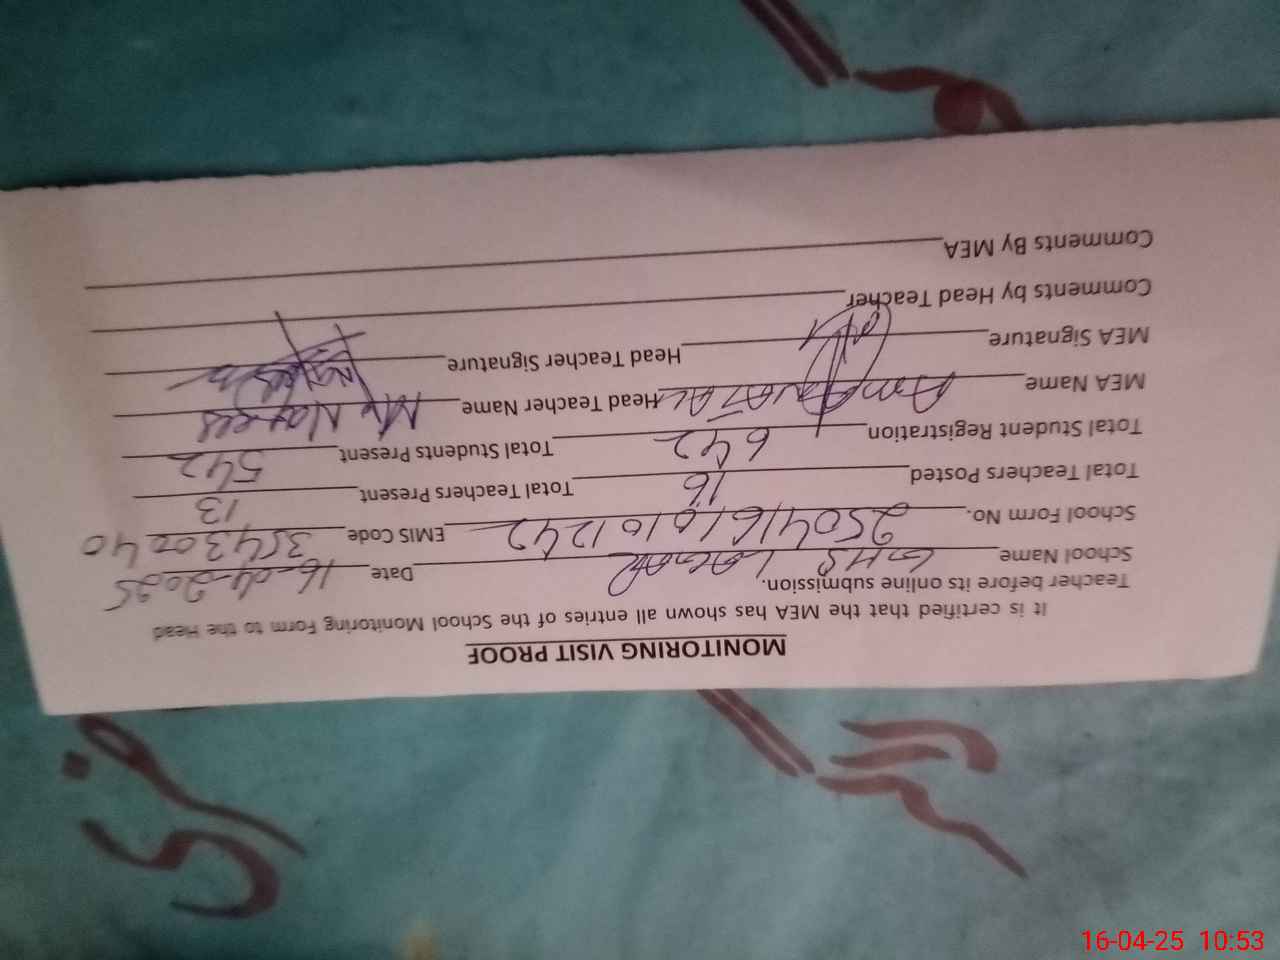 MONITORING VISIT PROOF
It is certified that the MEA has shown all entries of the School Monitoring Form to the Head
Teacher before its online submission.
School Name GHS Date 16-04-2025
School Form No. 2504161010101242 EMIS Code 35430040
Total Teachers Posted 16 Total Teachers Present 13
Total Student Registration 642 Total Students Present 542
MEA Name Head Teacher Name
MEA Signature Head Teacher Signature
Comments by Head Teacher
Comments By MEA
16-04-25 10:53